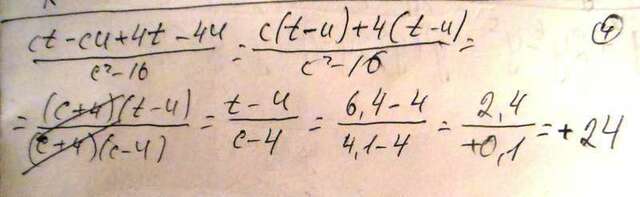 (ct - cu + 4t - 4u) / (c² - 16) = (c(t - u) + 4(t - u)) / (c² - 16) = ④
= ((c+4)(t - u)) / ((c+4)(c - 4)) = (t - u) / (c - 4) = (6,4 - 4) / (4,1 - 4) = (2,4) / (+0,1) = + 24